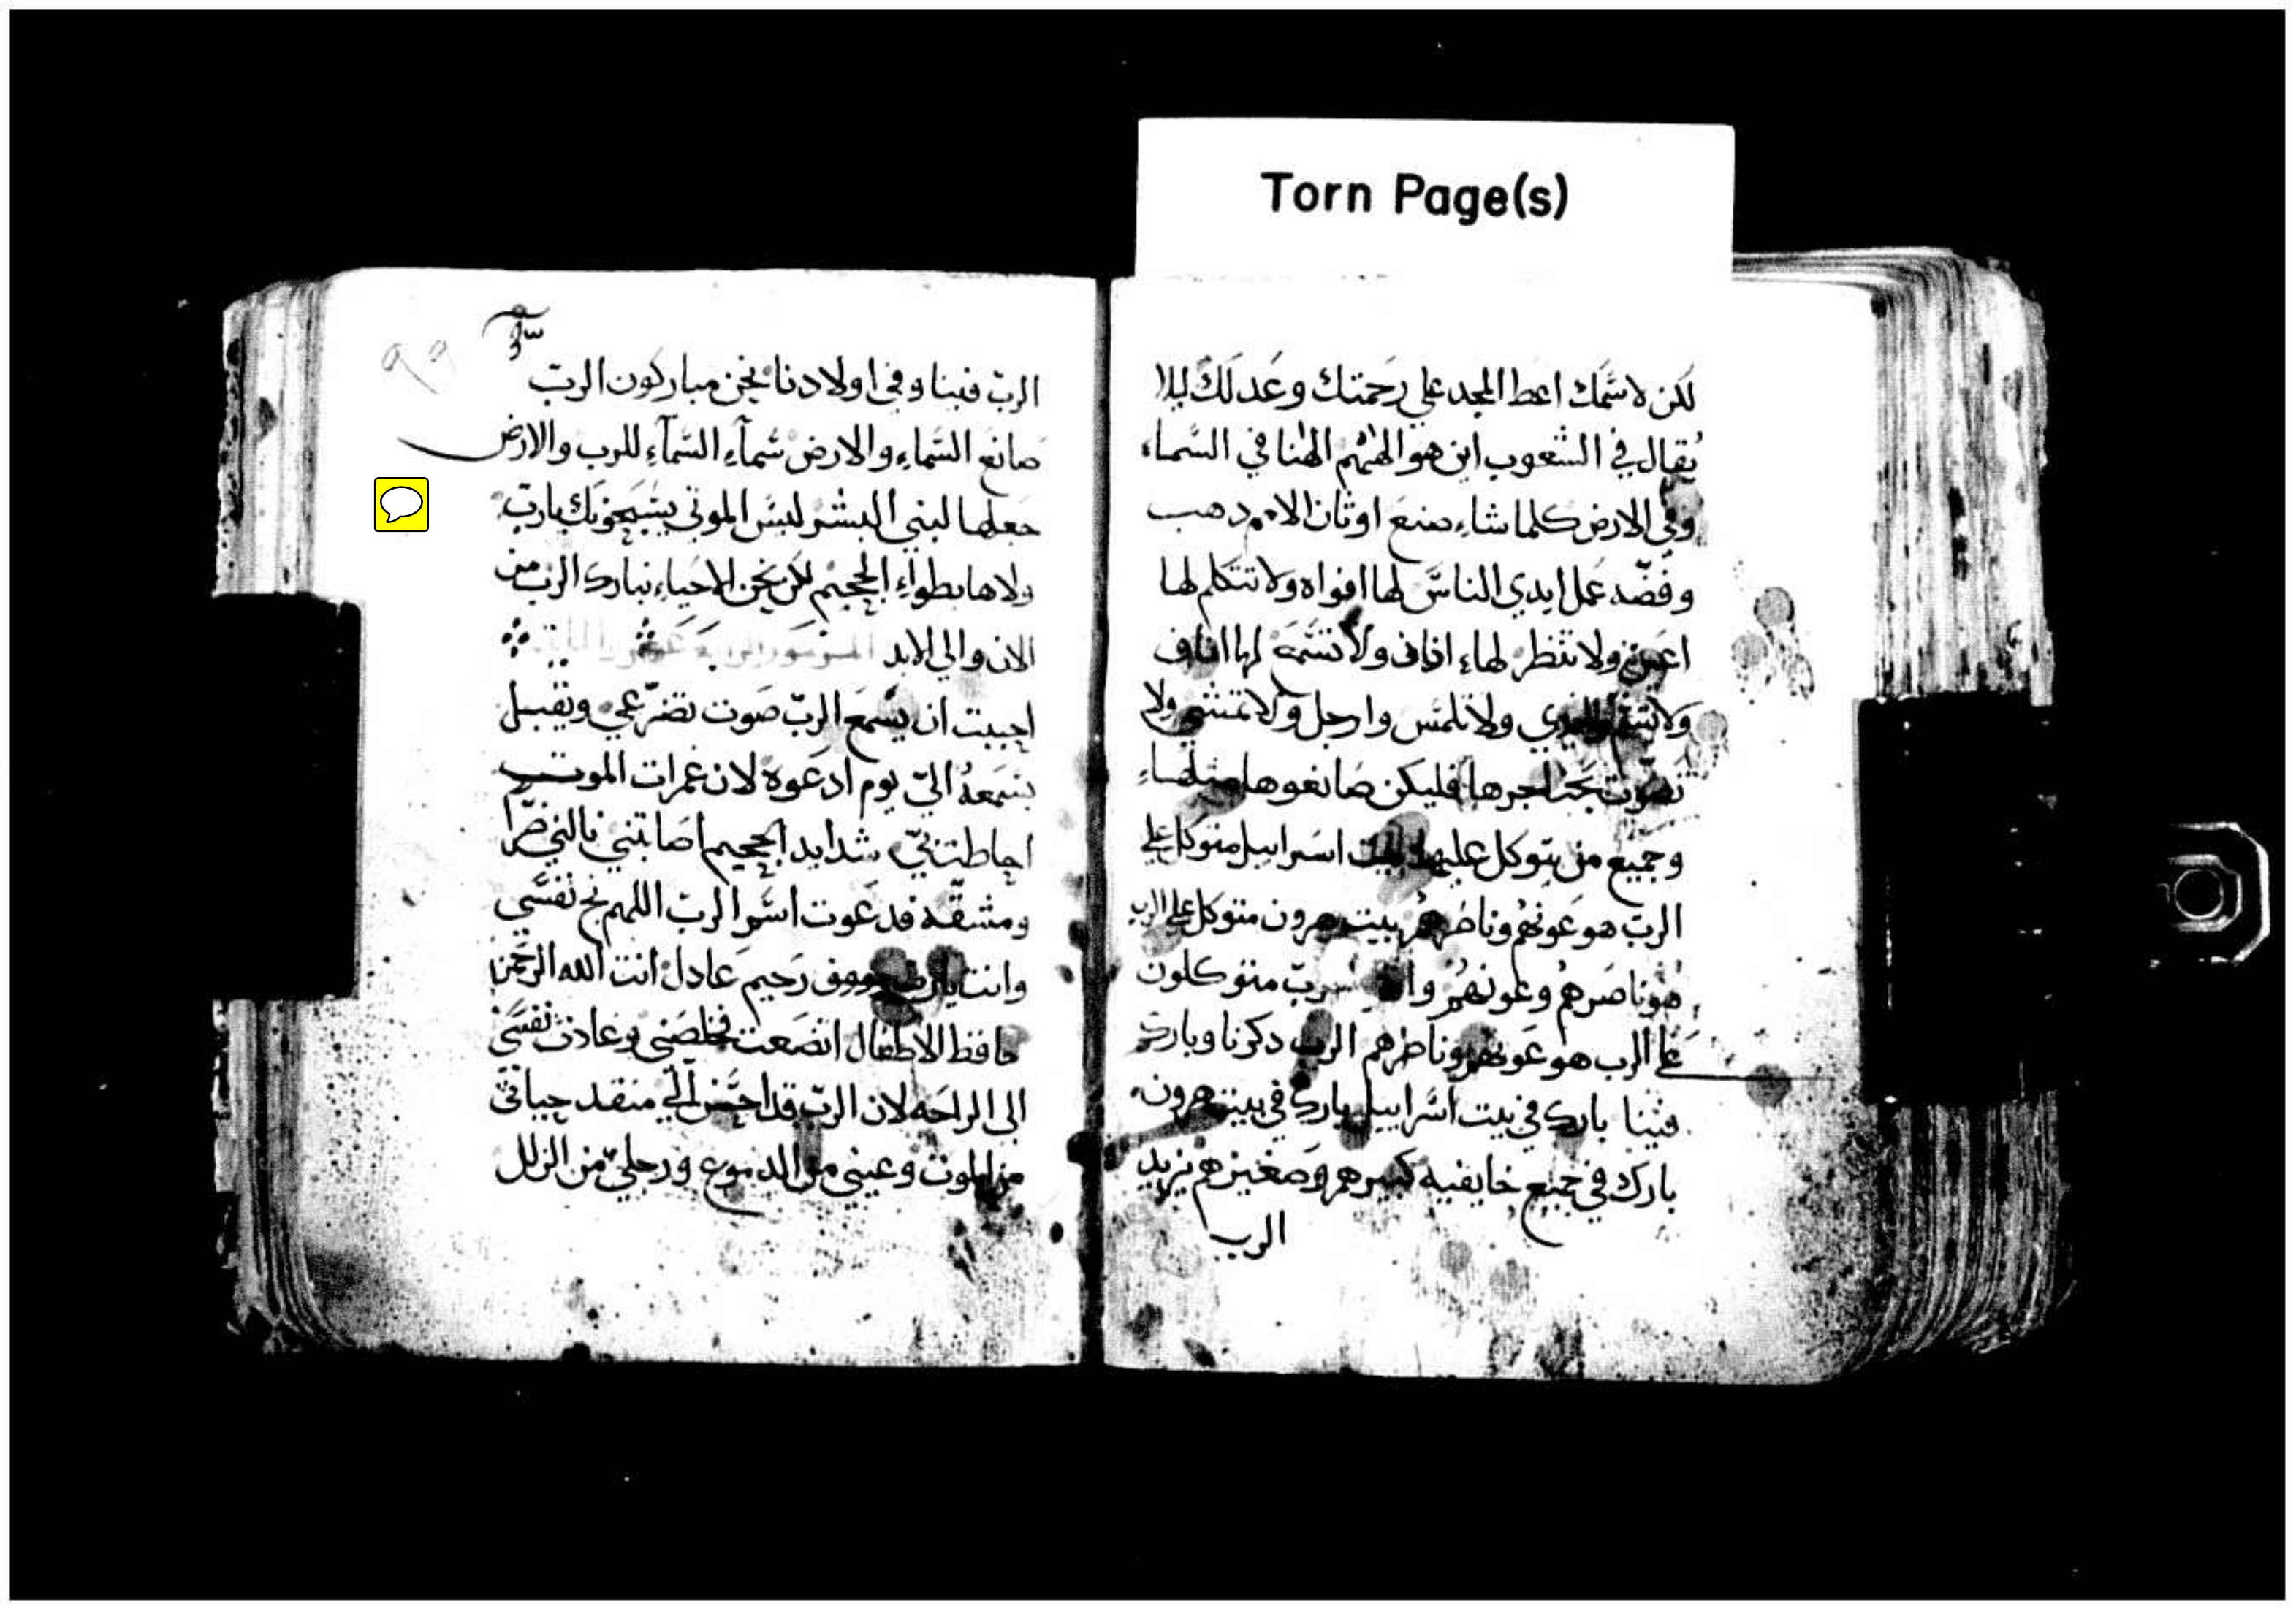 Torn Page(s)
لكن لاسمك اعط المجد علي رحمتك وعدلك ليلا
يقال في الشعوب اين هو الههم الهنا في السماء
وفي الارض كلما شاء صنع اوثان الامم دهب
وفضه عمل ايدي الناس لها افواه ولا تتكلم لها
اعين ولا تنظر لها اذان ولا تسمع لها اناف
ولا تشم ايدي ولا تلمس وارجل ولا تمشي ولا
تصوت بحناجرها فليكن صانعوها مثلها
وجميع من يتوكل عليها بيت اسراييل متوكل علي
الرب هو عونهم وناصرهم بيت هرون متوكل علي الرب
هو ناصرهم وعونهم الرب متوكلون
علي الرب هو عونهم وناصرهم الرب دكرنا وبارك
فينا بارك في بيت اسراييل بارك في بيت هرون
بارك في جميع خايفيه كبيرهم وصغيرهم يزيد
الرب
٩٩
الرب فينا وفي اولادنا نحن مباركون الرب
صانع السماء والارض سماء السماء للرب والارض
جعلها لبني البشر ليس الموتي يسبحونك يارب
ولا هابطوا الجحيم لكن نحن الاحياء نبارك الرب من
الان والي الابد
احببت ان يسمع الرب صوت تضرعي ويقبل
بسمعه الي يوم ادعوه لان غمرات الموت
احاطت بي شدايد الجحيم اصابتني نالني ضرا
ومشقه فدعوت اسم الرب اللهم نج نفسي
وانت يارب رووف رحيم عادل انت الله الرحمن
حافظ الاطفال اتضعت فخلصني وعادت نفسي
الى الراحه لان الرب قد احسن الي منقد حياتي
من الموت وعيني من الدموع ورجلي من الزلل